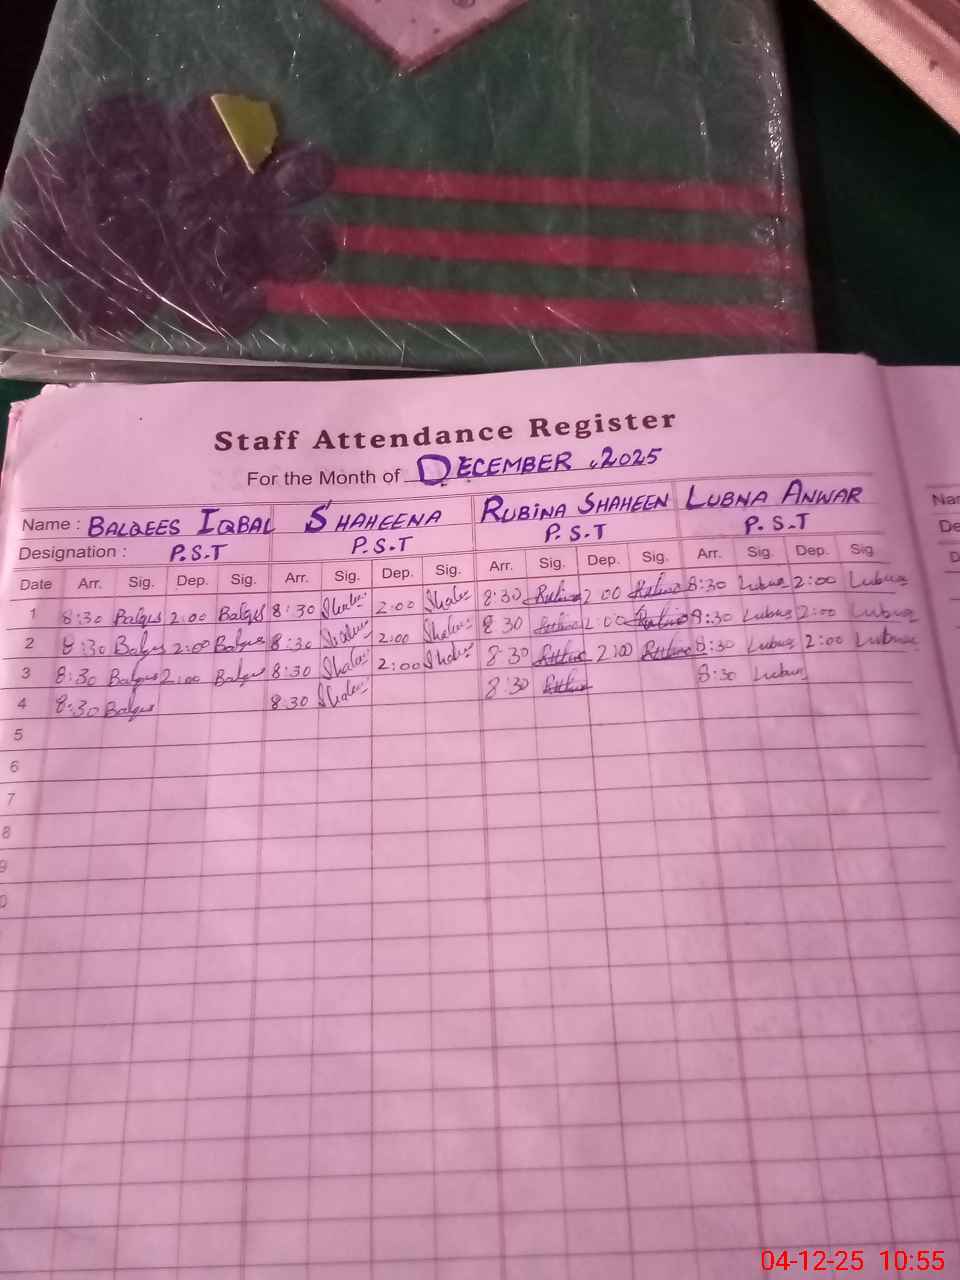 Staff Attendance Register
For the Month of DECEMBER ,2025
Name : BALQEES IQBAL SHAHEENA RUBINA SHAHEEN LUBNA ANWAR Nar
Designation : P.S.T P.S.T P.S.T P.S.T De
Date Arr. Sig. Dep. Sig. Arr. Sig. Dep. Sig. Arr. Sig. Dep. Sig. Arr. Sig. Dep. Sig D
1 8:30 Balqus 2:00 Balqus 8:30 2:00 8:30 Rubina 2:00 Rubina 8:30 Lubna 2:00 Lubna
2 8:30 Balqus 2:00 Balqus 8:30 2:00 8:30 2:00 8:30 Lubna 2:00 Lubna
3 8:30 Balqus 2:00 Balqus 8:30 2:00 8:30 2:00 8:30 Lubna 2:00 Lubna
4 8:30 Balqus 8:30 8:30 8:30 Lubna
5
6
7
8
9
0
04-12-25 10:55